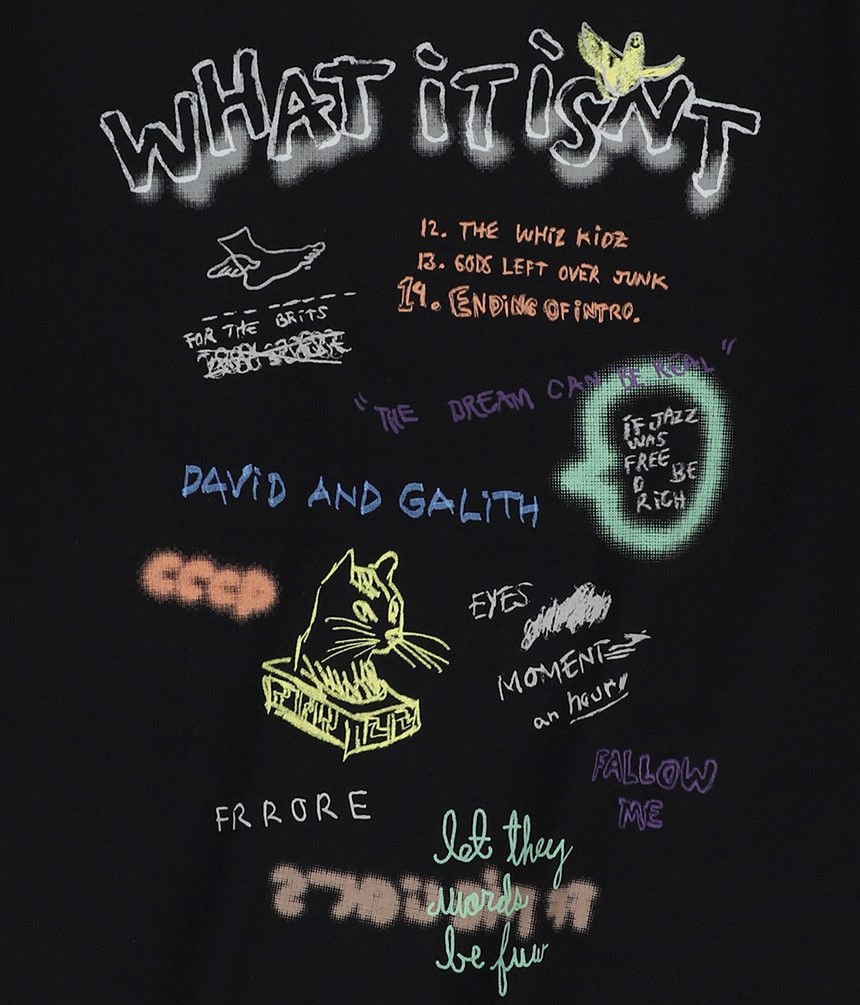 WHAT iT iSNT
12. THE WHIZ KIDZ
13. GODS LEFT OVER JUNK
14. ENDING OF INTRO.
FOR THE BRITS
"THE DREAM CAN BE REAL"
iF JAZZ
WAS
FREE
D BE
RiCH
DAViD AND GALiTH
CCCP
EYES
MOMENT
an hour
FALLOW
ME
FRRORE
let they
words
be fuw